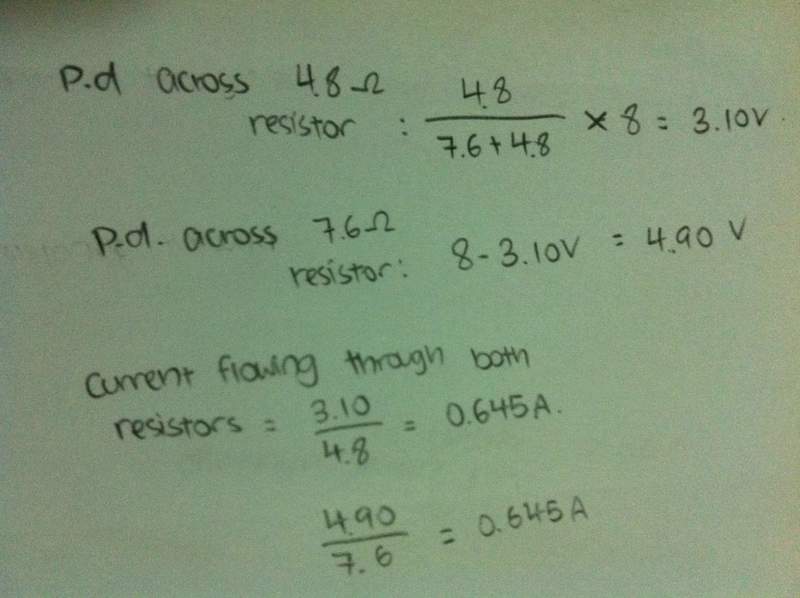 P.d across 4.8Ω 4.8
resistor : ――― × 8 = 3.10V.
7.6 + 4.8
P.d. across 7.6Ω
resistor: 8 - 3.10V = 4.90 V
Current flowing through both
resistors = 3.10 / 4.8 = 0.645A.
4.90 / 7.6 = 0.645A